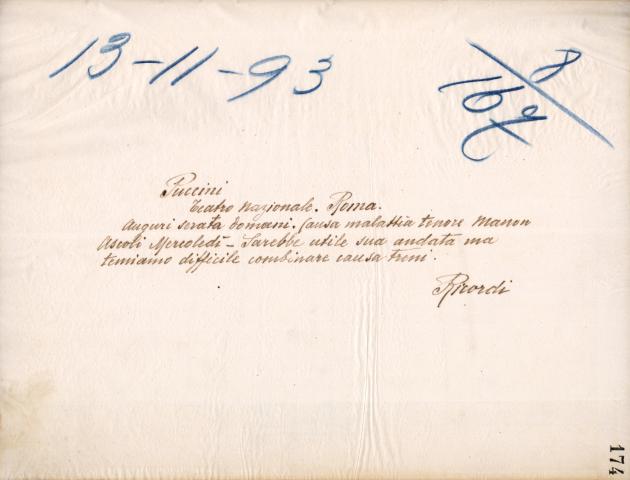 13-11-93
8
167
Puccini
Teatro Nazionale. Roma.
Auguri serata domani. Causa malattia tenore Manon
Ascoli Mercoledì - Sarebbe utile sua andata ma
temiamo difficile combinare causa treni.
Ricordi
174